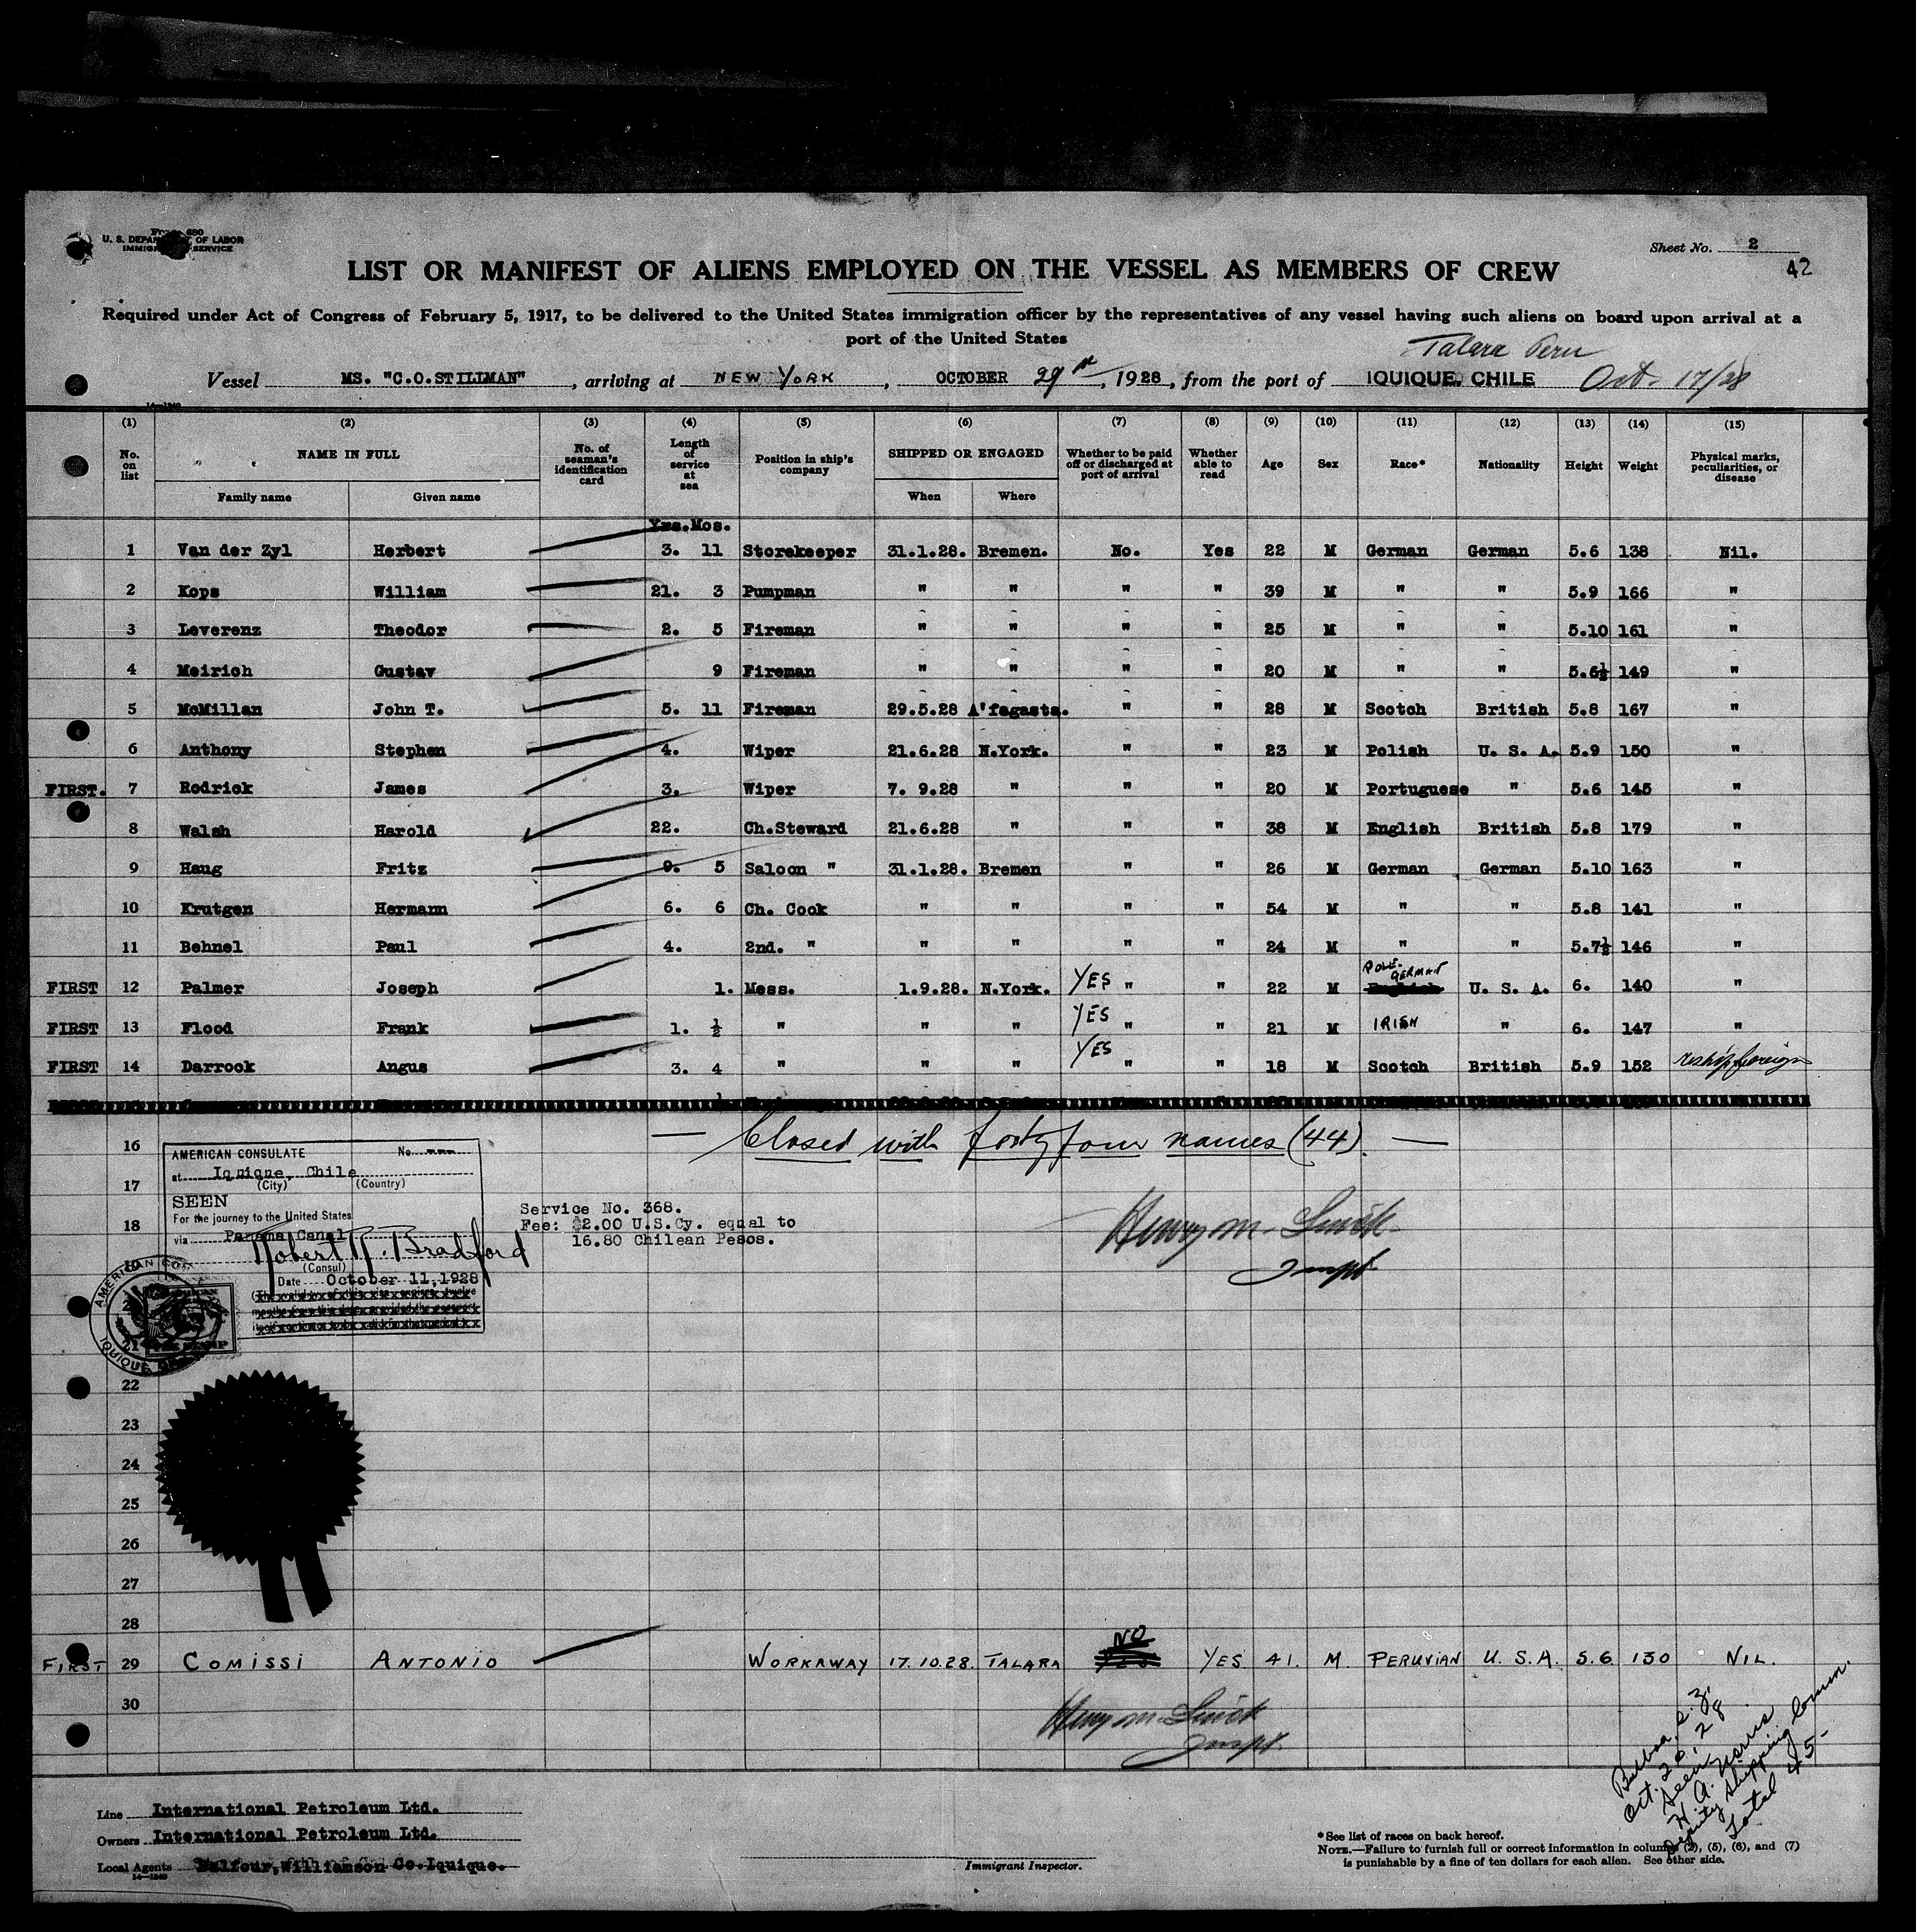 Form 680
U. S. DEPARTMENT OF LABOR
IMMIGRATION SERVICE
Sheet No. 2
42
LIST OR MANIFEST OF ALIENS EMPLOYED ON THE VESSEL AS MEMBERS OF CREW
Required under Act of Congress of February 5, 1917, to be delivered to the United States immigration officer by the representatives of any vessel having such aliens on board upon arrival at a
port of the United States
Talara Peru
Vessel MS. "C.O.STILLMAN", arriving at NEW YORK, OCTOBER 29th, 1928, from the port of IQUIQUE. CHILE Oct. 17/28
14—1240
(1) (2) (3) (4) (5) (6) (7) (8) (9) (10) (11) (12) (13) (14) (15)
No. on list NAME IN FULL No. of seaman's identification card Length of service at sea Position in ship's company SHIPPED OR ENGAGED Whether to be paid off or discharged at port of arrival Whether able to read Age Sex Race* Nationality Height Weight Physical marks, peculiarities, or disease
Family name Given name When Where
Yrs. Mos.
1 Van der Zyl Herbert 3. 11 Storekeeper 31.1.28. Bremen. No. Yes 22 M German German 5.6 138 Nil.
2 Kops William 21. 3 Pumpman " " " " 39 M " " 5.9 166 "
3 Leverenz Theodor 2. 5 Fireman " " " " 25 M " " 5.10 161 "
4 Meirich Gustav 9 Fireman " " " " 20 M " " 5.6½ 149 "
5 McMillan John T. 5. 11 Fireman 29.5.28 A'fagasta. " " 28 M Scotch British 5.8 167 "
6 Anthony Stephen 4. Wiper 21.6.28 N.York. " " 23 M Polish U. S. A. 5.9 150 "
FIRST. 7 Rodrick James 3. Wiper 7. 9.28 " " " 20 M Portuguese " 5.6 145 "
8 Walsh Harold 22. Ch.Steward 21.6.28 " " " 38 M English British 5.8 179 "
9 Haug Fritz 9. 5 Saloon " 31.1.28. Bremen " " 26 M German German 5.10 163 "
10 Krutgen Hermann 6. 6 Ch. Cook " " " " 54 M " " 5.8 141 "
11 Behnel Paul 4. 2nd. " " " " " 24 M " " 5.7½ 146 "
POLE. GERMAN
FIRST 12 Palmer Joseph 1. Mess. 1.9.28. N.York. YES " " 22 M English U. S. A. 6. 140 "
FIRST 13 Flood Frank 1. ½ " " " YES " " 21 M IRISH " 6. 147 "
FIRST 14 Darrock Angus 3. 4 " " " YES " " 18 M Scotch British 5.9 152 reship foreign
16 — Closed with forty four names (44). —
AMERICAN CONSULATE No. ---
at Iquique, Chile
(City) (Country)
17
SEEN
For the journey to the United States
18
via Panama Canal
Robert R. Bradford
(Consul)
Date October 11, 1928
Service No. 368.
Fee: $2.00 U.S.Cy. equal to
16.80 Chilean Pesos.
Henry M. Smick
Inspt.
19
AMERICAN CONSULATE
IQUIQUE
21
22
23
24
25
26
27
28
NO
FIRST 29 COMISSI ANTONIO WORKAWAY 17.10.28. TALARA YES YES. 41. M. PERUVIAN U. S. A. 5.6. 130 NIL.
30
Henry M. Smick
Inspt.
Balboa, C. Z.
Oct. 20, 28
Seen
H. A. Norris
Deputy Shipping Comm.
Total 45-
Line International Petroleum Ltd.
Owners International Petroleum Ltd.
Local Agents Balfour, Williamson Co. Iquique.
14—1240
Immigrant Inspector.
*See list of races on back hereof.
NOTE.—Failure to furnish full or correct information in columns (2), (5), (6), and (7)
is punishable by a fine of ten dollars for each alien. See other side.